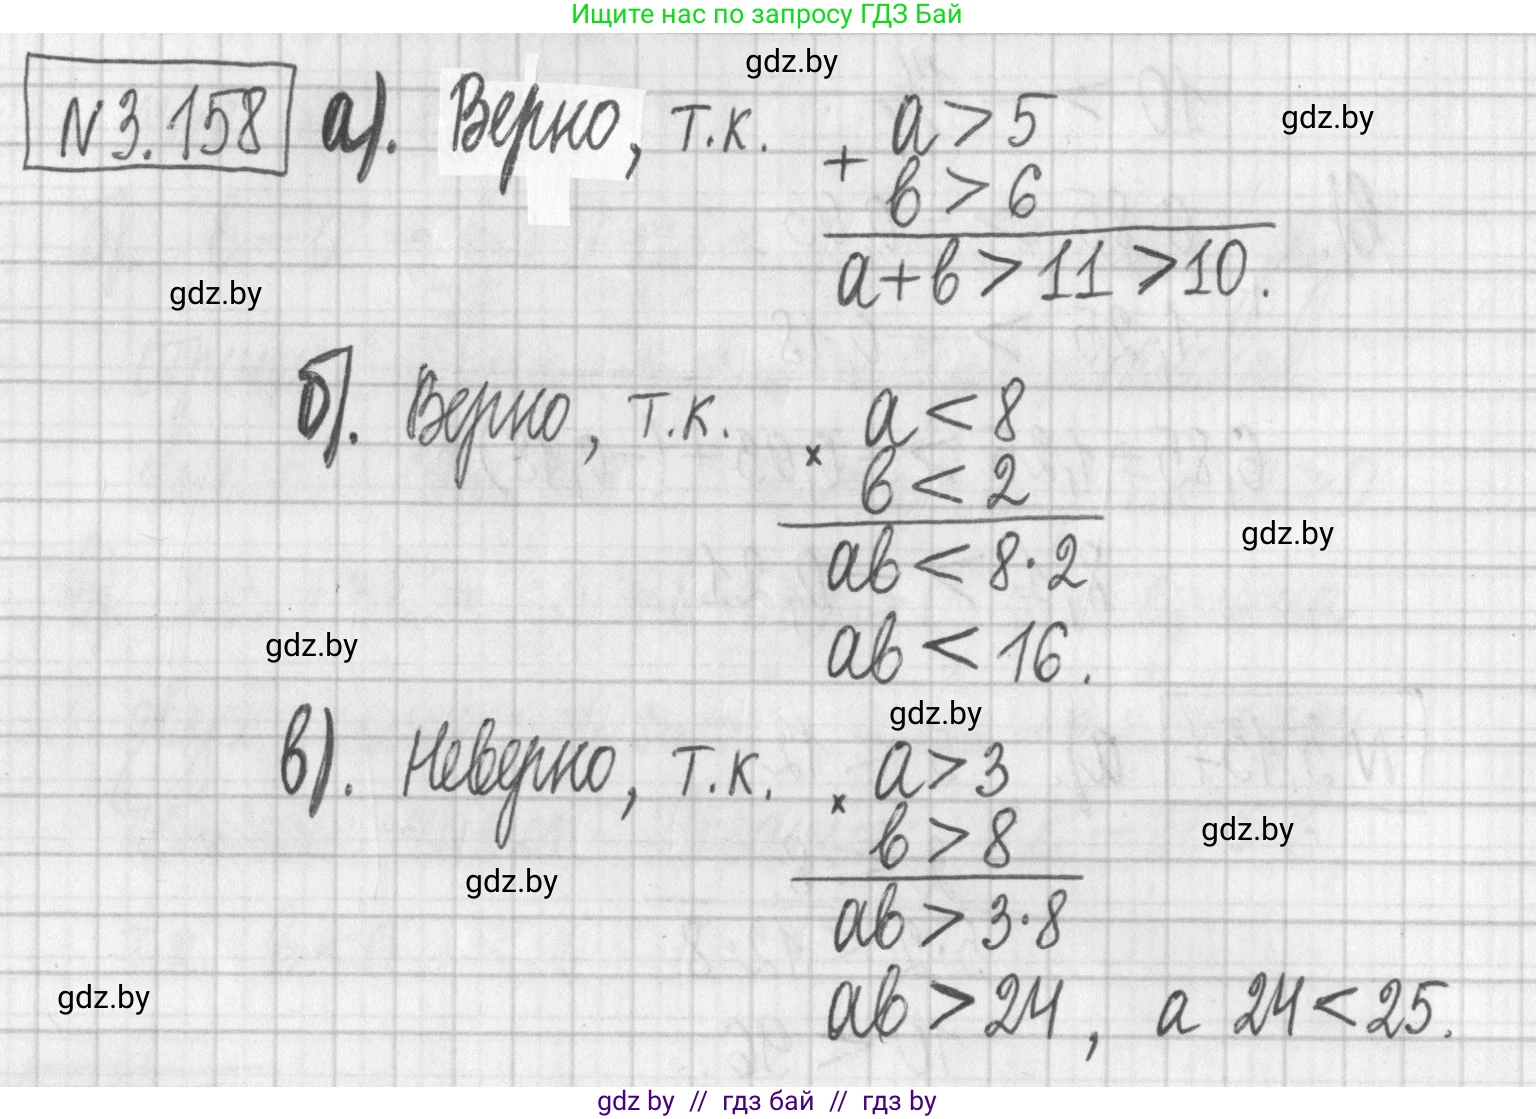 Ищите нас по запросу ГДЗ Бай
gdz.by
N 3.158 а). Верно, т.к. + a > 5
gdz.by
b > 6
a + b > 11 > 10.
gdz.by
б). Верно, т.к. × a < 8
b < 2
gdz.by
ab < 8·2
gdz.by
ab < 16.
gdz.by
в). Неверно, т.к. × a > 3
b > 8
gdz.by
gdz.by
ab > 3·8
gdz.by
ab > 24, а 24 < 25.
gdz by // гдз бай // гдз by